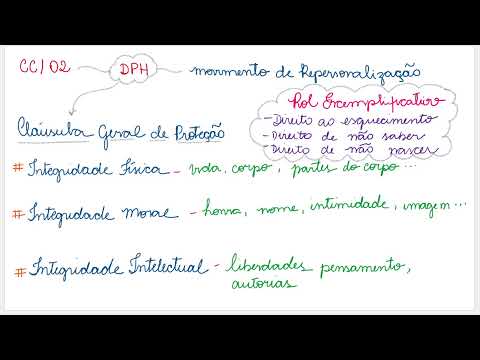 CC/02 DPH - movimento de Repersonalização
Rol Exemplificativo
- Direito ao esquecimento
- Direito de não saber
- Direito de não nascer
Cláusula Geral de Proteção
# Integridade Física - vida, corpo, partes do corpo...
# Integridade Moral - honra, nome, intimidade, imagem...
# Integridade Intelectual - liberdades pensamento,
autorias